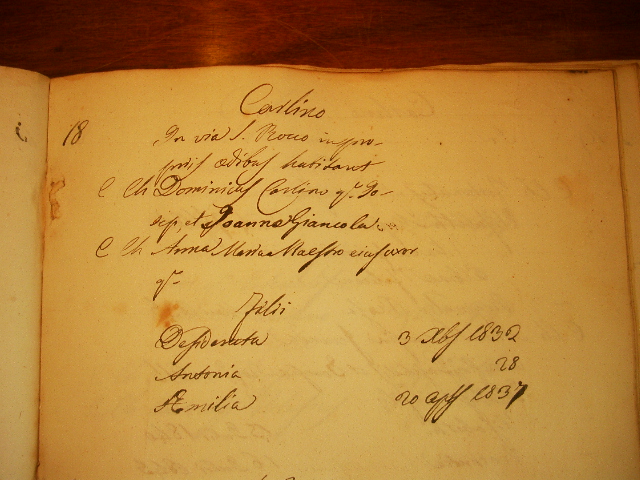 Carlino
18
In via S. Rocco in pro-
priis ædibus habitant
C Ch Dominicus Carlino q.m Jo-
sep, et Joanna Giancola
C Ch Anna Maria Maestro ejus uxor
q.m
Filii
Desiderata 3 Xbris 1832
Antonia 28
Æmilia 20 1837